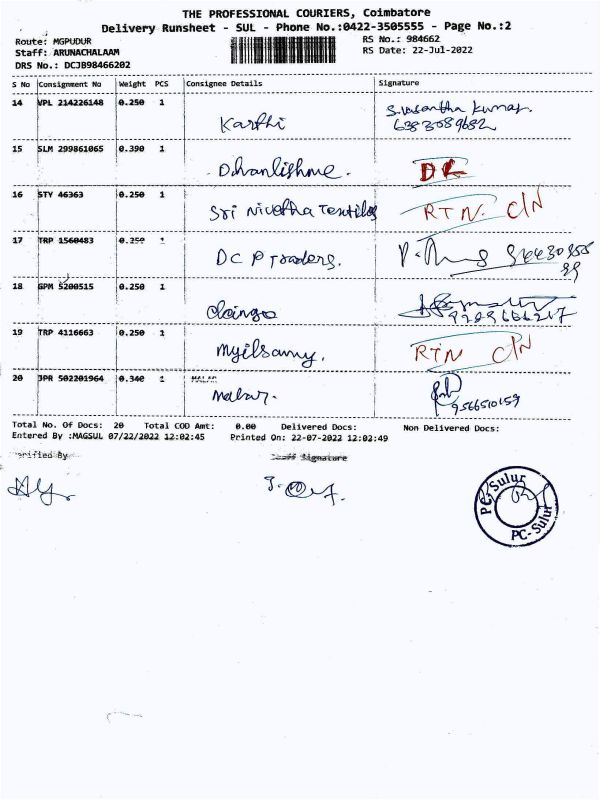 THE PROFESSIONAL COURIERS, Coimbatore
Delivery Runsheet - SUL - Phone No.:0422-3505555 - Page No.:2
Route: MGPUDUR RS No.: 984662
Staff: ARUNACHALAAM RS Date: 22-Jul-2022
DRS No.: DCJB98466202
S No Consignment No Weight PCS Consignee Details Signature
14 VPL 214226148 0.250 1 Karthi S.vasantha kumar.
6383089682
15 SLM 299861065 0.390 1 Dhanlishme.
16 STY 46363 0.250 1 Sri Nivetha Textiles RTN. C/N
17 TRP 1560483 0.250 1 DC P Traders.
18 GPM 5200515 0.250 1
19 TRP 4116663 0.250 1 Myilsamy. RTN C/N
20 JPR 502201964 0.340 1 MALAR
Malar. 9566510159
Total No. Of Docs: 20 Total COD Amt: 0.00 Delivered Docs: Non Delivered Docs:
Entered By :MAGSUL 07/22/2022 12:02:45 Printed On: 22-07-2022 12:02:49
Verified By Staff Signature
PC-Sulur
PC-Sulur